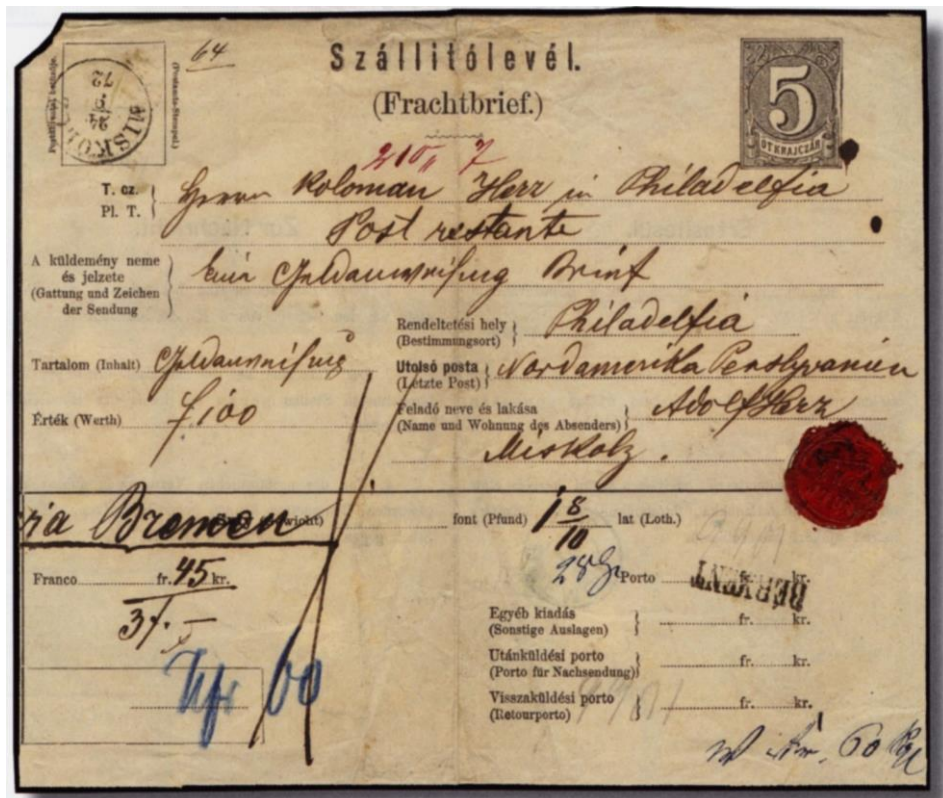 64
Szállitólevél.
(Frachtbrief.)
5
ÖT KRAJCZÁR
MISKOLCZ
24
9
72
210 7
T. cz.
Pl. T.
Herrn Koloman Herz in Philadelfia
Post restante
A küldemény neme
és jelzete
(Gattung und Zeichen
der Sendung
Ein Geldanweisung Brief
Rendeltetési hely
(Bestimmungsort)
Philadelfia
Tartalom (Inhalt) Geldanweisung
Utolsó posta
(Letzte Post)
Nordamerika Penslyvanien
Érték (Werth) f. 100
Feladó neve és lakása
(Name und Wohnung des Absenders)
Adolf Herz
Miskolz.
via Bremen
font (Pfund) 8/10 lat (Loth.)
Franco fr. 45 kr.
Porto fr. kr.
BÉRMENT
Egyéb kiadás
(Sonstige Auslagen)
fr. kr.
Utánküldési porto
(Porto für Nachsendung)
fr. kr.
Visszaküldési porto
(Retourporto)
fr. kr.
60
60